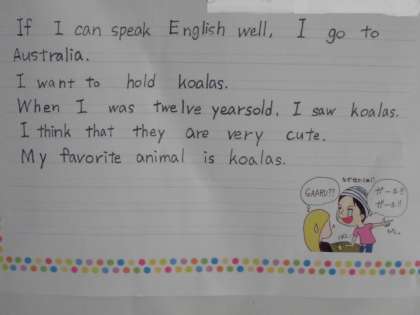 If I can speak English well, I go to
Australia.
I want to hold koalas.
When I was twelve yearsold, I saw koalas.
I think that they are very cute.
My favorite animal is koalas.
GAARU??
ガール!!
ガール!!